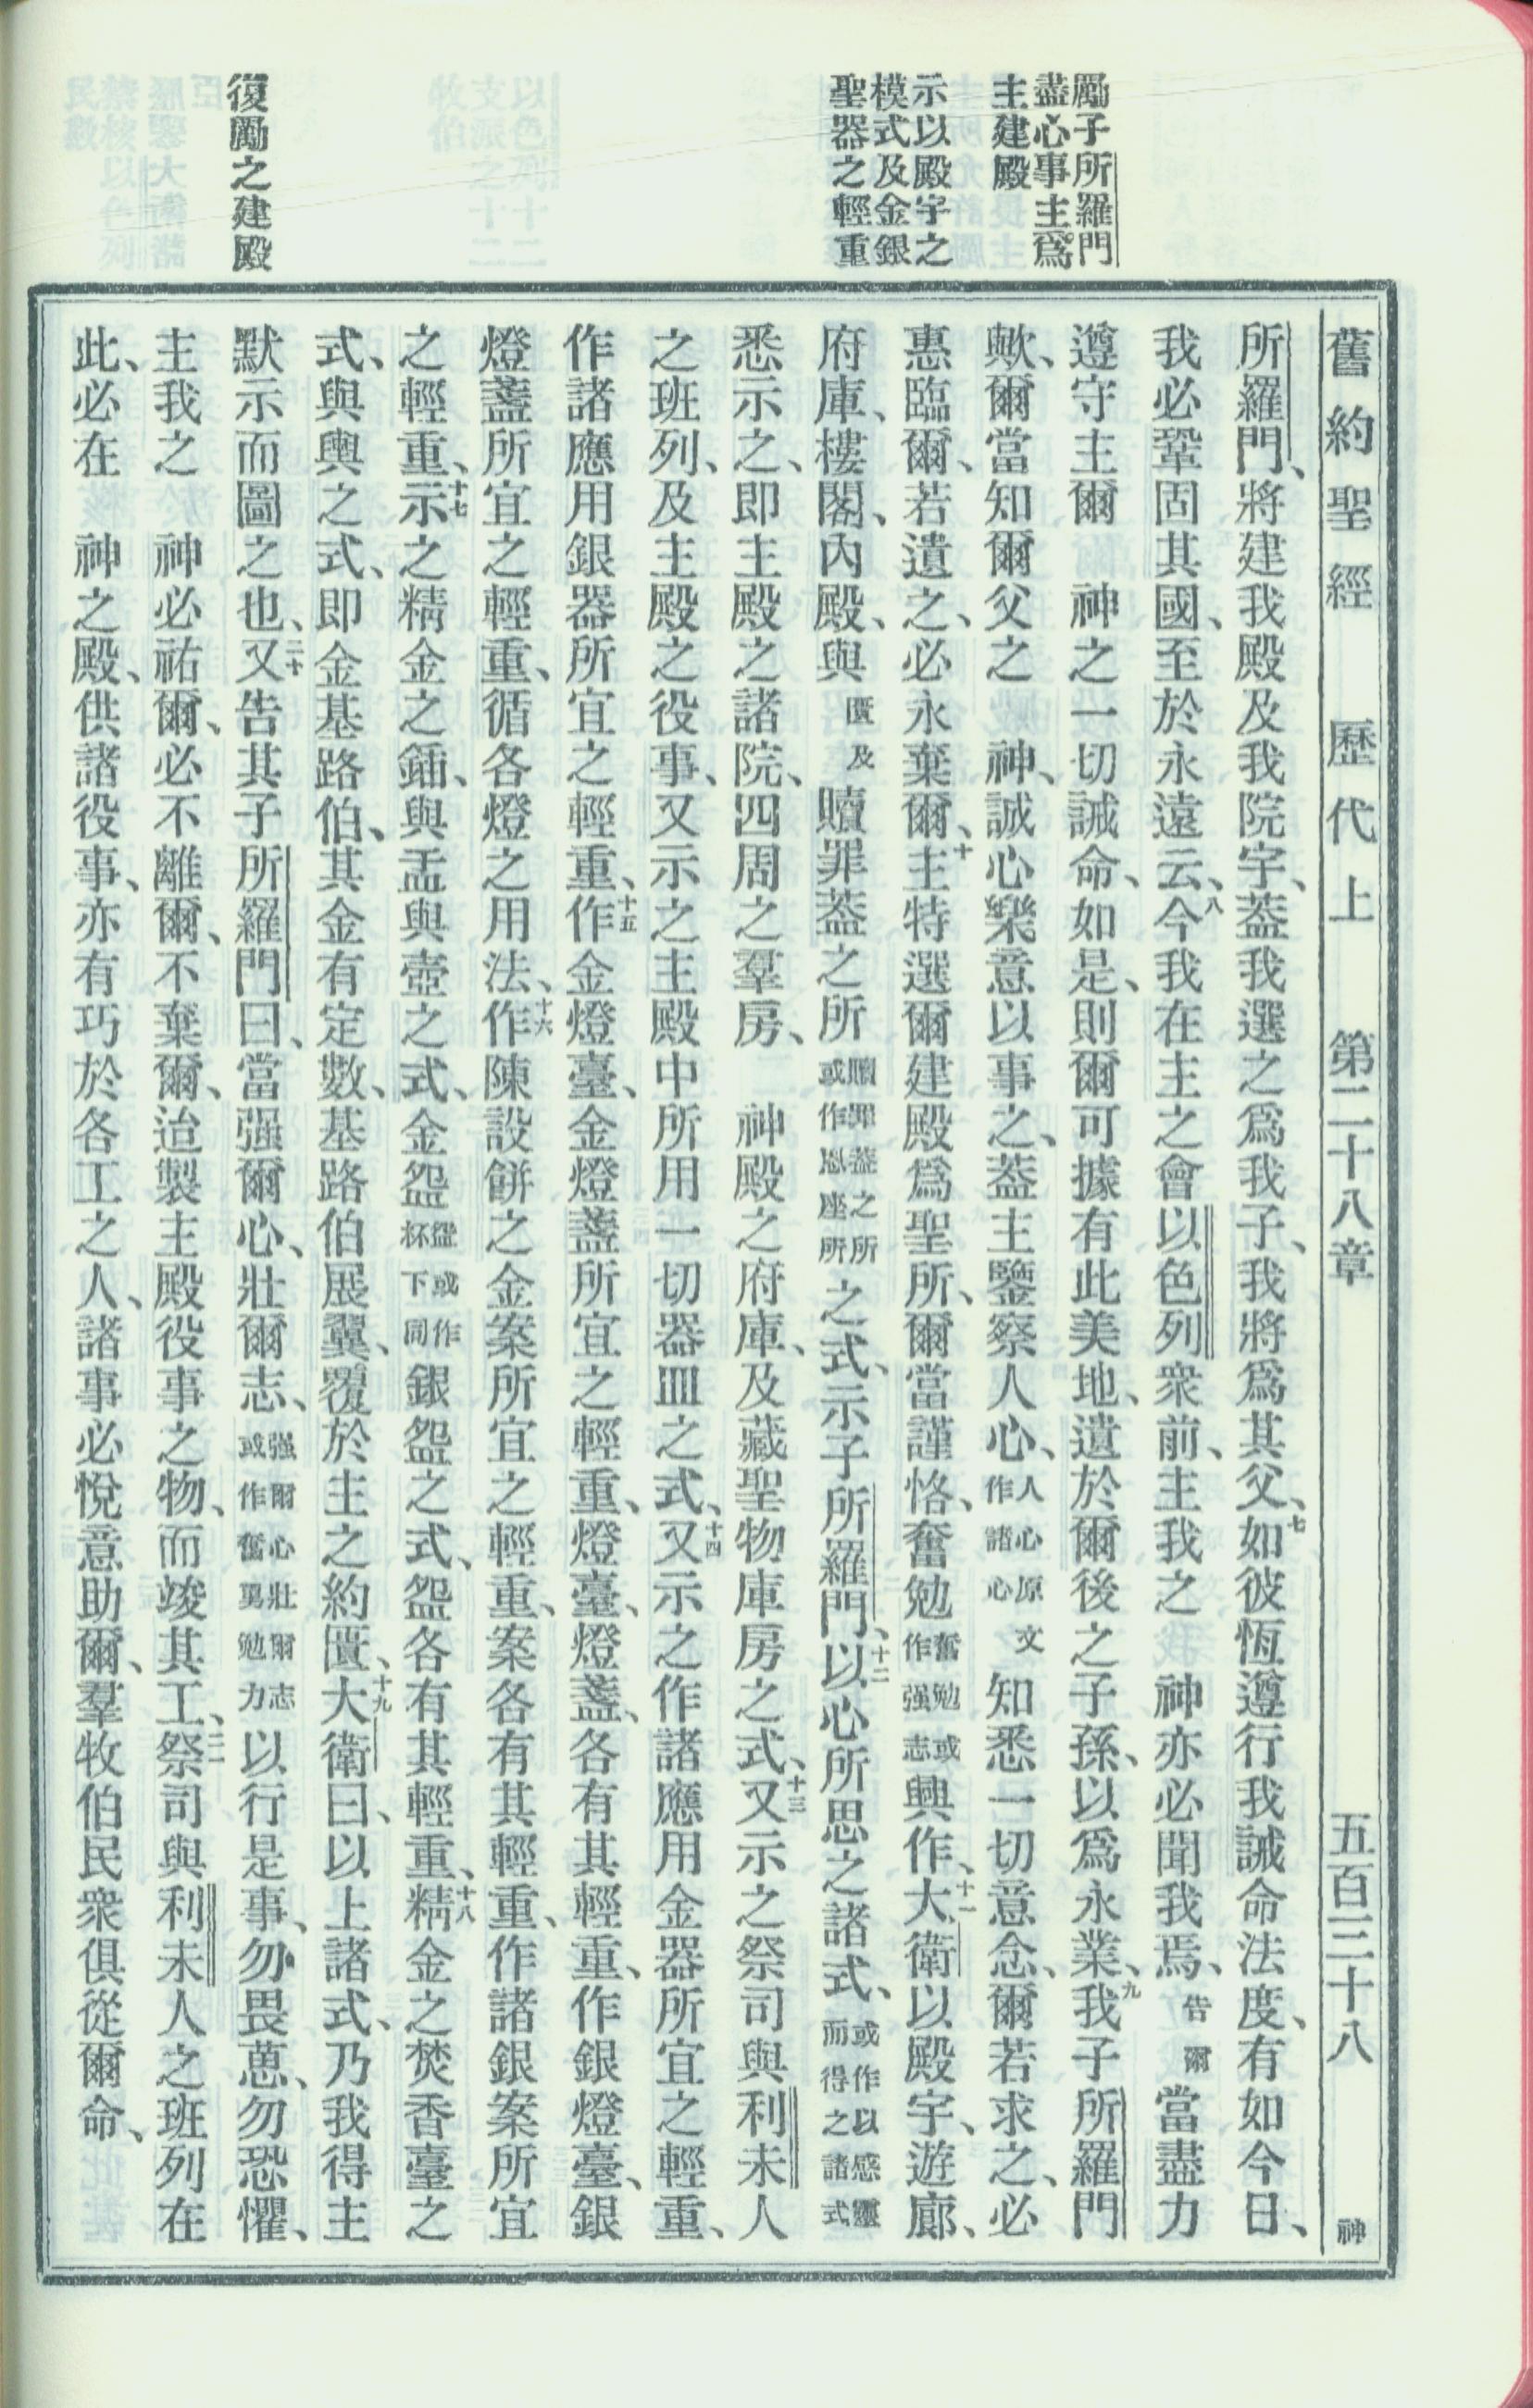 勵子所羅門
盡心事主爲
主建殿
示以殿宇之
模式及金銀
聖器之輕重
復勵之建殿
舊約聖經 歷代上 第二十八章 五百三十八 神
所羅門、將建我殿及我院宇、蓋我選之爲我子、我將爲其父、七如彼恆遵行我誡命法度、有如今日、
我必鞏固其國、至於永遠云、八今我在主之會以色列衆前、主我之 神亦必聞我焉、告爾當盡力
遵守主爾 神之一切誡命、如是、則爾可據有此美地、遺於爾後之子孫、以爲永業、九我子所羅門
歟、爾當知爾父之 神、誠心樂意以事之、蓋主鑒察人心、人心原文作諸心知悉一切意念、爾若求之、必
惠臨爾、若遺之、必永棄爾、十主特選爾建殿爲聖所、爾當謹恪、奮勉奮勉或作强志興作、十一大衛以殿宇、遊廊、
府庫、樓閣、內殿、與匱及贖罪蓋之所贖罪蓋之所或作恩座所之式、示子所羅門、十二以心所思之諸式、或作以感靈而得之諸式
悉示之、即主殿之諸院、四周之羣房、 神殿之府庫、及藏聖物庫房之式、十三又示之祭司與利未人
之班列、及主殿之役事、又示之主殿中所用一切器皿之式、十四又示之作諸應用金器所宜之輕重、
作諸應用銀器所宜之輕重、十五作金燈臺、金燈盞所宜之輕重、燈臺、燈盞、各有其輕重、作銀燈臺、銀
燈盞所宜之輕重、循各燈之用法、十六作陳設餅之金案所宜之輕重、案各有其輕重、作諸銀案所宜
之輕重、十七示之精金之鍤、與盂與壺之式、金盌盌或作杯下同銀盌之式、盌各有其輕重、十八精金之焚香臺之
式、與輿之式、即金基路伯、其金有定數、基路伯展翼、覆於主之約匱、十九大衛曰、以上諸式、乃我得主
默示而圖之也、二十又告其子所羅門曰、當强爾心、壯爾志、强爾心壯爾志或作奮勇勉力以行是事、勿畏葸、勿恐懼、
主我之 神必祐爾、必不離爾、不棄爾、迨製主殿役事之物、而竣其工、二一祭司與利未人之班列在
此、必在 神之殿、供諸役事、亦有巧於各工之人、諸事必悅意助爾、羣牧伯民衆俱從爾命、